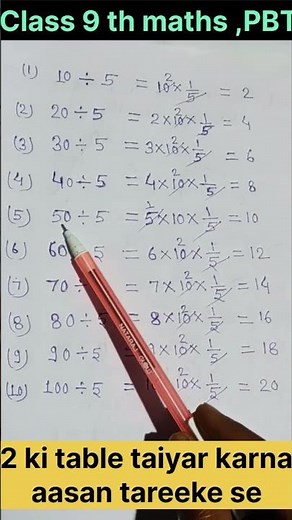 Class 9 th maths ,PBT
(1) 10 ÷ 5 = 10² × 1/5 = 2
(2) 20 ÷ 5 = 2 × 10² × 1/5 = 4
(3) 30 ÷ 5 = 3 × 10² × 1/5 = 6
(4) 40 ÷ 5 = 4 × 10² × 1/5 = 8
(5) 50 ÷ 5 = 5 × 10 × 1/5 = 10
(6) 60 ÷ 5 = 6 × 10² × 1/5 = 12
(7) 70 ÷ = 7 × 10² × 1/5 = 14
(8) 80 ÷ 5 = 8 × 10² × 1/5 = 16
(9) 90 ÷ 5 = × 10² × 1/5 = 18
(10) 100 ÷ 5 = 10² × 1/5 = 20
NATARAJ
2 ki table taiyar karna
aasan tareeke se